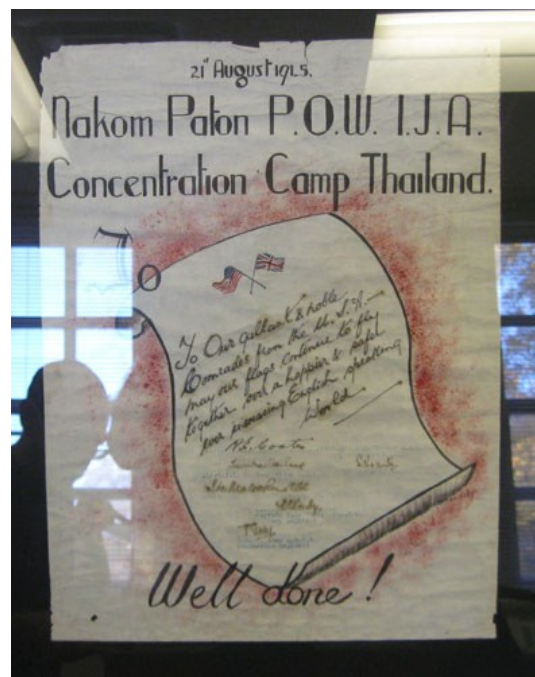 21st August 1945.
Nakom Paton P.O.W. I.J.A.
Concentration Camp Thailand.
To
To Our gallant & noble
Comrades from the U.S.A.
may our flags continue to fly
together over a happier & safer
ever increasing English speaking
World
Well done!